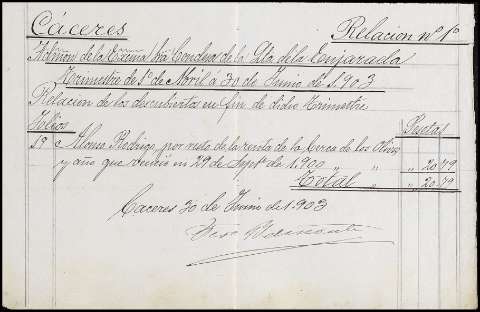 Cáceres Relacion nº 1º
de la Exma Sra Condesa de la Qta de la Enjarada
Trimestre de 1º de Abril á 30 de Junio de 1.903
Relacion de los descubiertos en fin de dicho Trimestre
Folios Psetas
19 Alonso Rodrigo por resto de la renta de la Cerca de los Olivos
y año que venció en 29 de Sept.e de 1.900 " " " 20.79
Total " " 20.79
Caceres 30 de Junio de 1.903
José